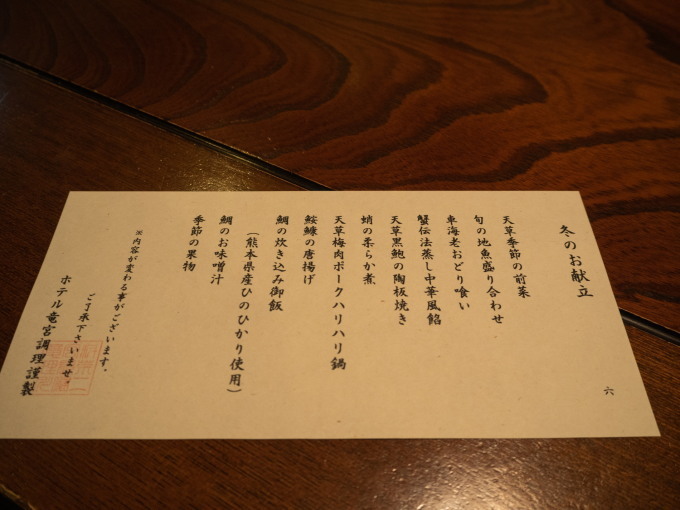 冬のお献立
六
天草季節の前菜
旬の地魚盛り合わせ
車海老おどり喰い
蟹伝法蒸し中華風餡
天草黒鮑の陶板焼き
蛸の柔らか煮
天草梅肉ポークハリハリ鍋
鮟鱇の唐揚げ
鯛の炊き込み御飯
(熊本県産ひのひかり使用)
鯛のお味噌汁
季節の果物
※内容が変わる事がございます。
ご了承下さいませ。
ホテル竜宮調理謹製